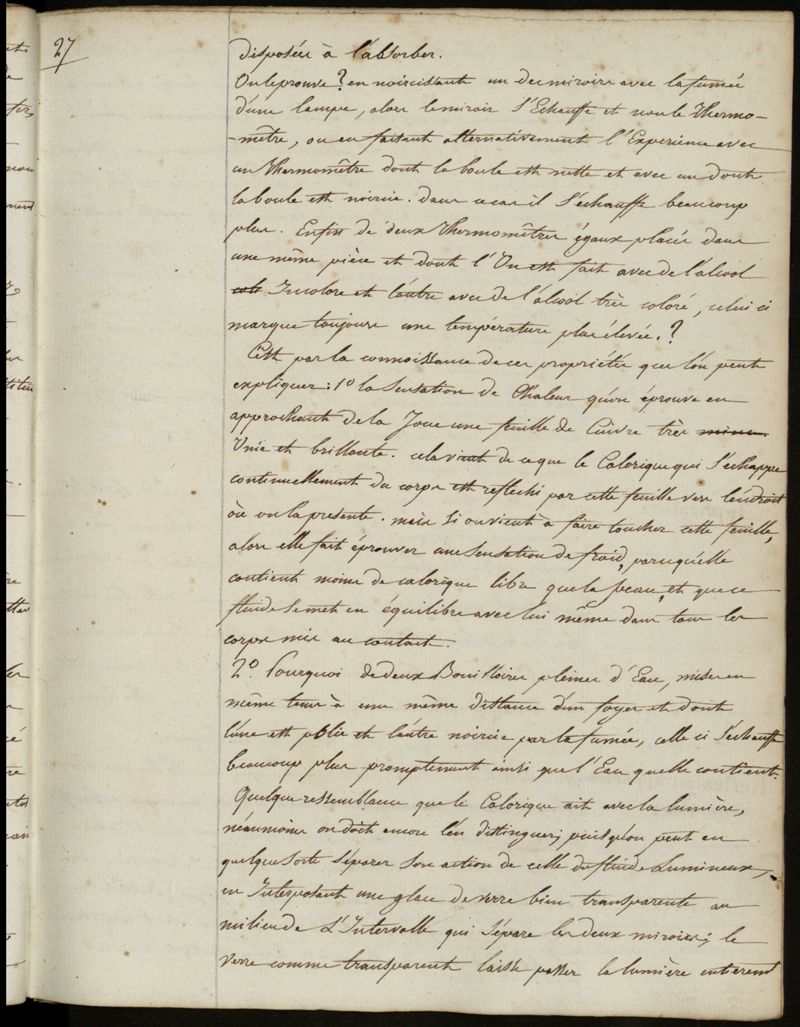 27
disposées à l'absorber.
On le prouve ? en noircissant un des miroirs avec la fumée
d'une lampe, alors le miroir s'Echauffe et non le Thermo-
-mètre, ou en faisant alternativement l'Experience avec
un Thermomètre dont la boule est nette et avec un dont
la boule est noircie. dans ce cas il s'échauffe beaucoup
plus. Enfin de deux Thermomètres égaux placés dans
une même pièce et dont l'Un est fait avec de l'alcool
Incolore et l'autre avec de l'alcool très coloré, celui ci
marque toujours une température plus élevée. ?
C'est par la connoissance de ces propriétés que l'on peut
expliquer : 1º la Sensation de Chaleur qu'on éprouve en
approchant de la Joue une feuille de Cuivre très mince
Unie et brillante. cela vient de ce que le Calorique qui s'echappe
continuellement du corps est reflechi par cette feuille vers l'endroit
où on la presente. mais Si on vient à faire toucher cette feuille,
alors elle fait éprouver une Sensation de froid, parcequ'elle
contient moins de calorique libre que la peau, et que ce
fluide Se met en équilibre avec lui même dans tous les
corps mis au contact.
2º. Pourquoi de deux Bouilloires pleines d'Eau, mises en
même tems à une même distance d'un foyer et dont
l'une est polie et l'autre noircie par la fumée, celle ci s'échauffe
beaucoup plus promptement ainsi que l'Eau qu'elle contient.
Quelque ressemblance que le Calorique ait avec la lumière,
néanmoins on doit encore l'en distinguer, puisqu'on peut en
quelque sorte Séparer Son action de celle du fluide Lumineux,
en Interposant une glace de verre bien transparente au
milieu de L'Intervalle qui Sépare les deux miroirs ; le
Verre comme transparent laisse passer la lumière entierem^t